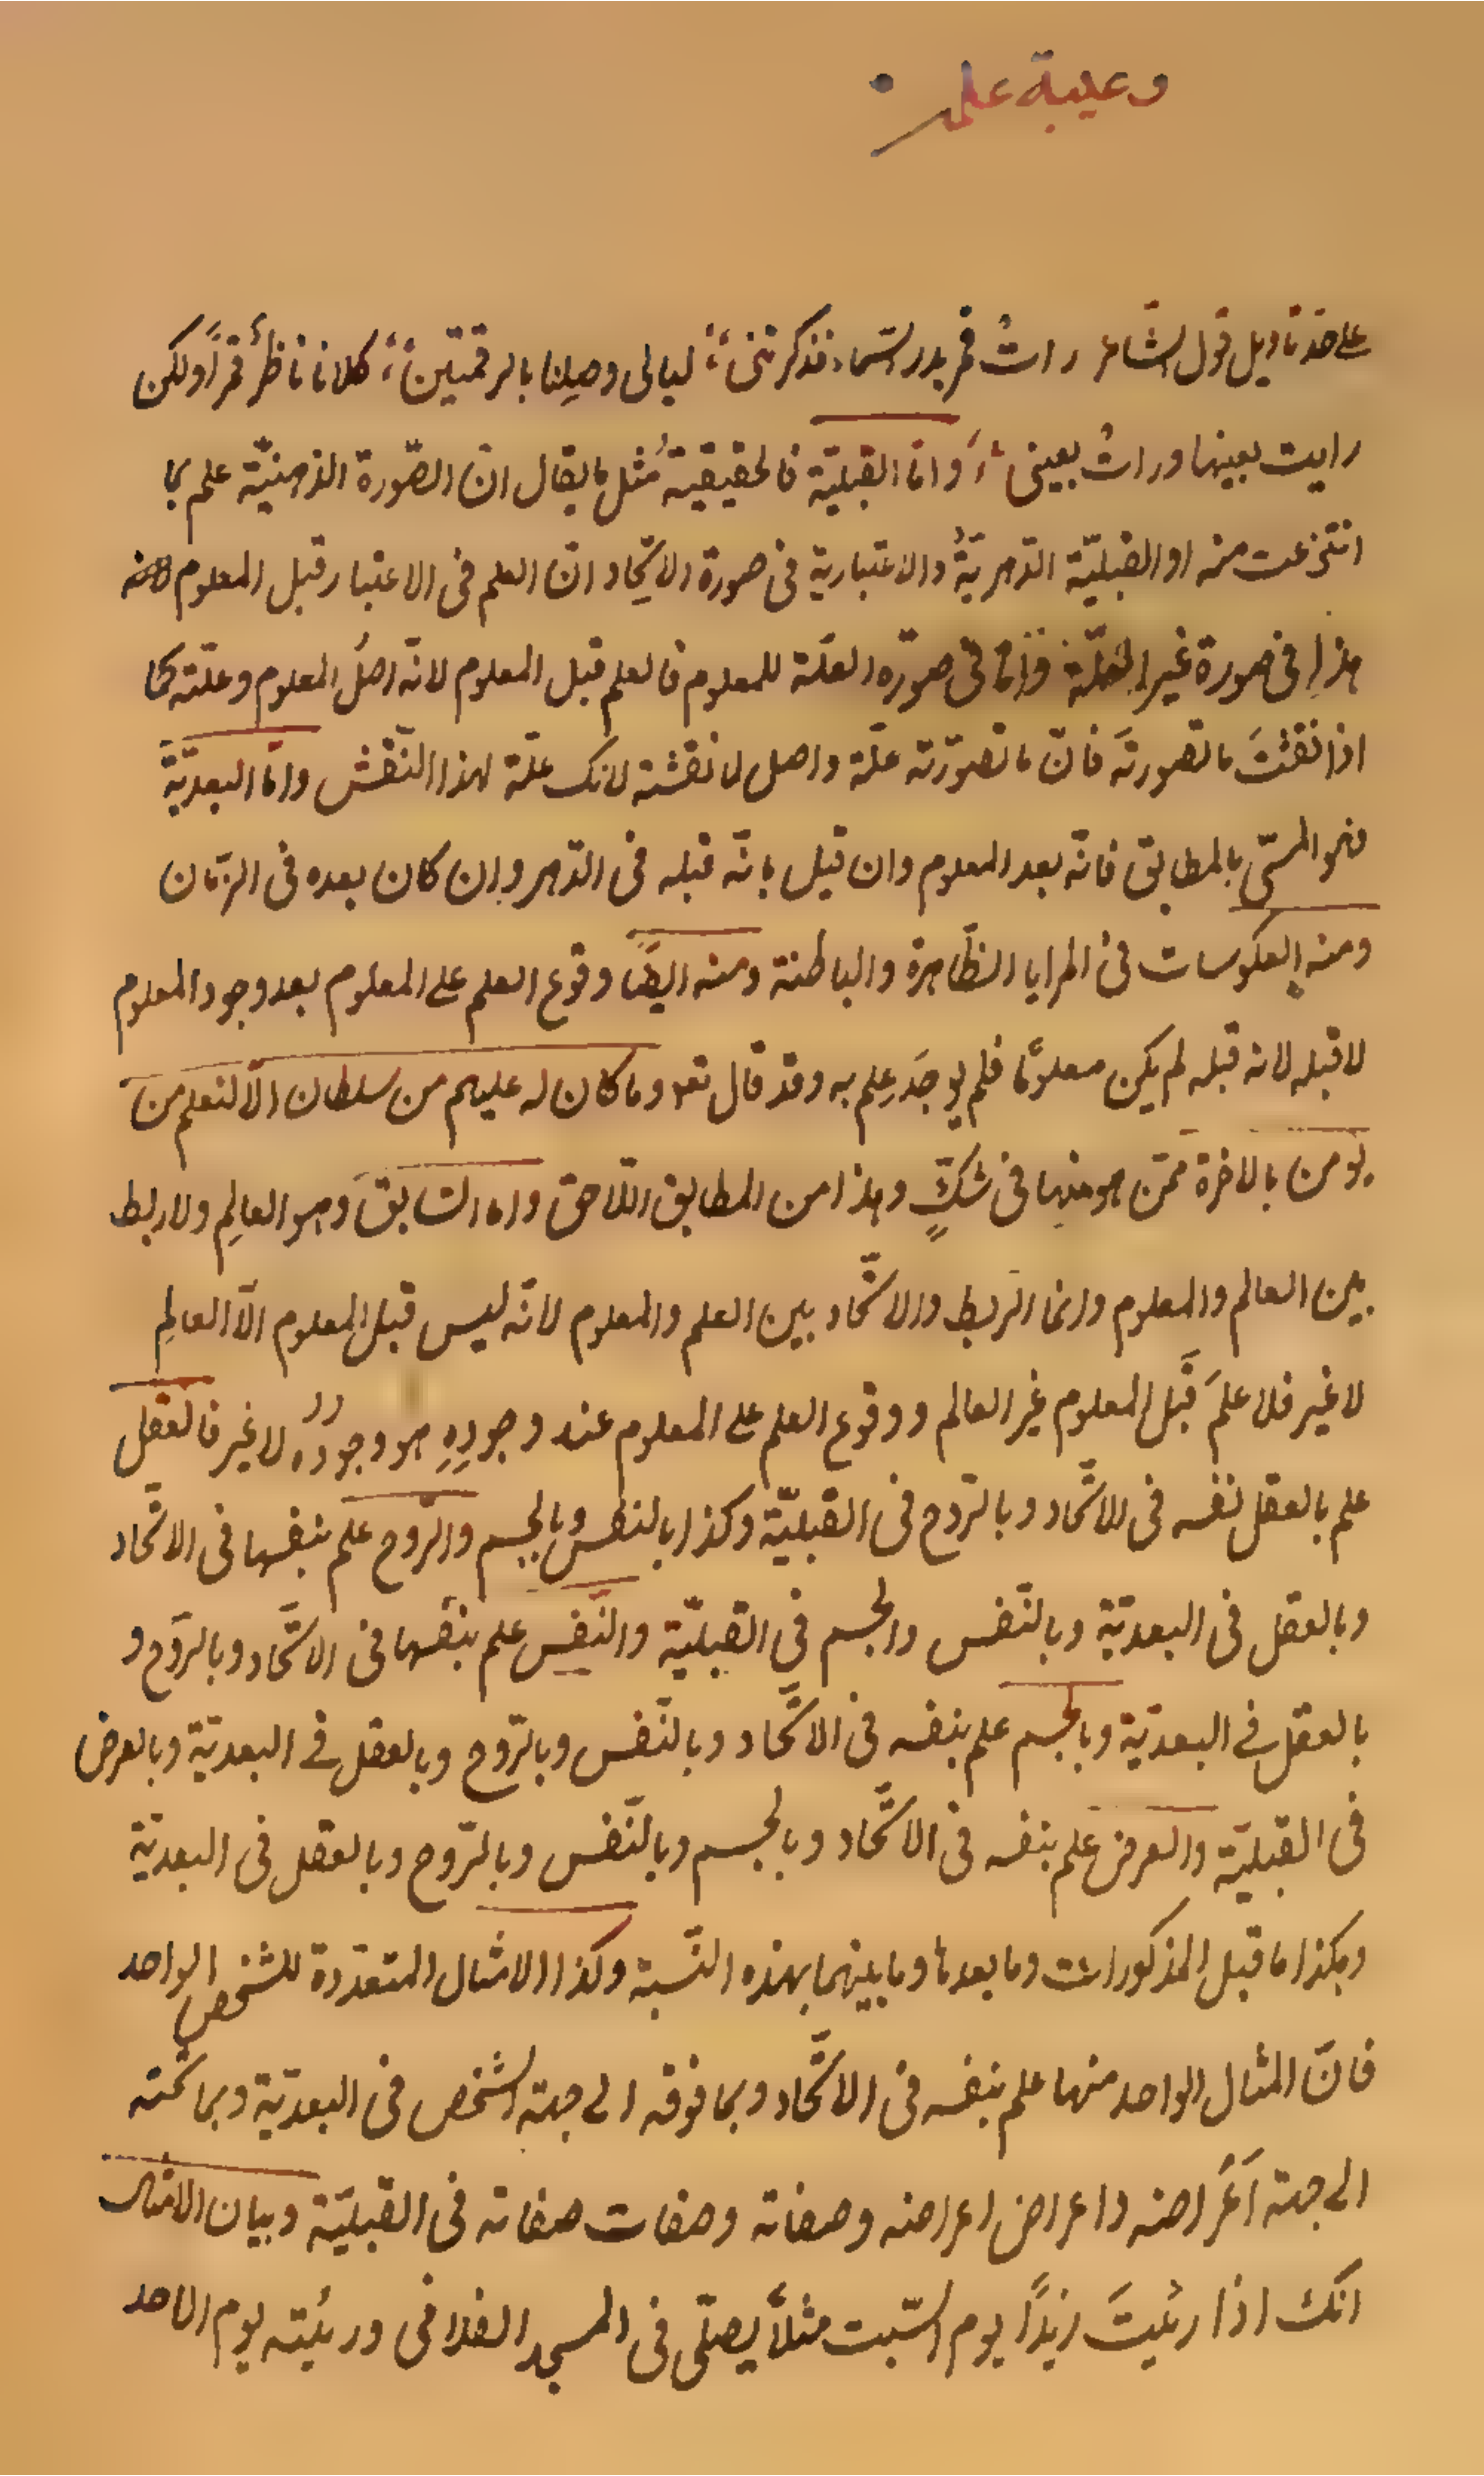 وعيبة علم
على حد تأويل قول الشاعر رات قمر بدر السماء فذكرتنى ليالى وصلنا بالرقمتين كلانا ناظر قمرا ولكن
رايت بعينها ورات بعينى وامّا القبليّة فالحقيقيّة مثل ما يقال انّ الصّورة الذهنيّة علم بما
انتزعت منه او القبليّة الدّهريّة والاعتبارية فى صورة الاتّحاد انّ العلم فى الاعتبار قبل المعلوم
هذا فى صورة غير العلّة وامّا فى صورة العلّة للمعلوم فالعلم قبل المعلوم لانّه اصل المعلوم وعلّته كما
اذا نقشتَ ما تصورتَه فانّ ما تصوّرته علّة واصل لما نقشته لانك علّة لهذا النّقش وامّا البعديّة
فهو المسمّى بالمطابق فانّه بعد المعلوم وان قيل بانّه قبله فى الدّهر وان كان بعده فى الزّمان
ومنه العكوسات فى المرايا الظّاهرة والباطنة ومنه ايضًا وقوع العلم على المعلوم بعد وجود المعلوم
لا قبله لانه قبله لم يكن معلومًا فلم يوجَد عِلم به وقد قال تعو وما كان له عليهم من سلطان الّا لنعلم من
يومن بالاخرة ممّن هو منها فى شكٍّ وهذا من المطابق اللّاحق واما السّابق وهو العالِم ولا ربط
بين العالم والمعلوم وانما الرّبط والاتّحاد بين العلم والمعلوم لانّه ليس قبل المعلوم الّا العالِم
لا غير فلا علمَ قَبل المعلوم غير العالم ووقوع العلم على المعلوم عند وجودِهِ هو وجودُه لا غير فالعقل
علم بالعقل نفسه فى الاتّحاد وبالرّوح فى القبليّة وكذا بالنفس وبالجسم والرّوح علم بنفسها فى الاتّحاد
وبالعقل فى البعديّة وبالنّفس والجسم فى القبليّة والنّفس علم بنفسها فى الاتّحاد وبالرّوح و
بالعقل فى البعديّة وبالجسم علم بنفسه فى الاتّحاد وبالنّفس وبالرّوح وبالعقل فى البعديّة وبالعرض
فى القبليّة والعرض علم بنفسه فى الاتّحاد وبالجسم وبالنّفس وبالرّوح وبالعقل فى البعديّة
وهكذا ما قبل المذكورات وما بعدها وما بينهما بهذه النّسبة وكذا الامثال المتعدّدة للشخص الواحد
فانّ المثال الواحد منها علم بنفسه فى الاتّحاد وبما فوقه الى جهة الشخص فى البعديّة وبما تحته
الى جهة اَعْرَاضه واعراض اعراضه وصفاته وصفات صفاته فى القبليّة وبيان الامثال
انّك اذا رئيتَ زيدًا يوم السّبت مثلًا يصلّى فى المسجد الفلانى ورئيته يوم الاحد